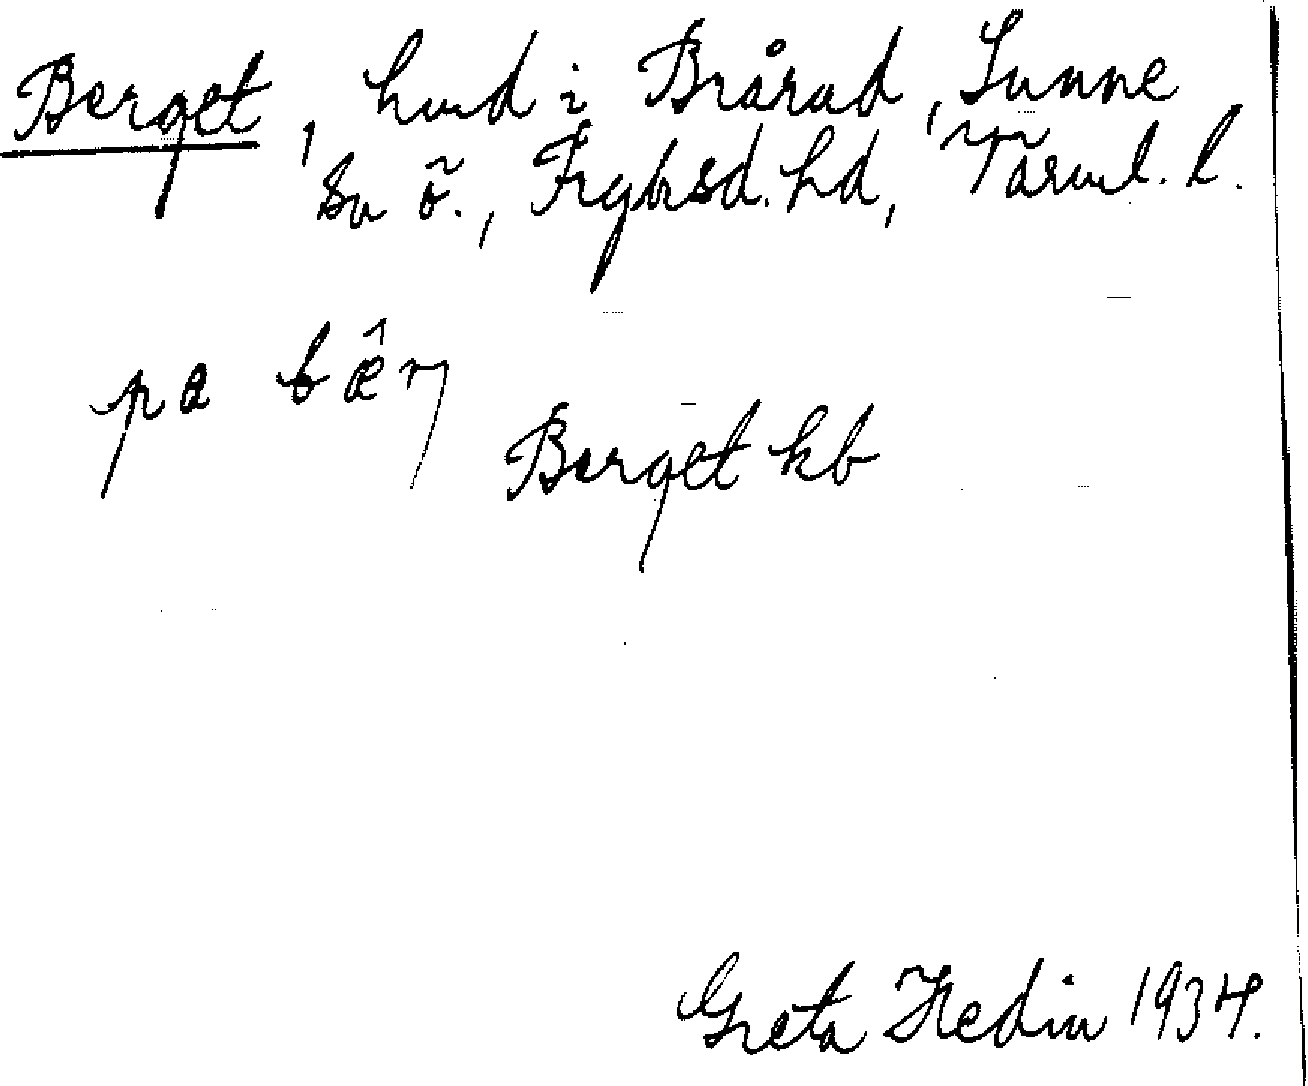 Berget, hmd i Brårud, Sunne
sn ö., Fryksd. hd, Värml. l.
pa bêrj
Berget kb
Greta Hedin 1934.